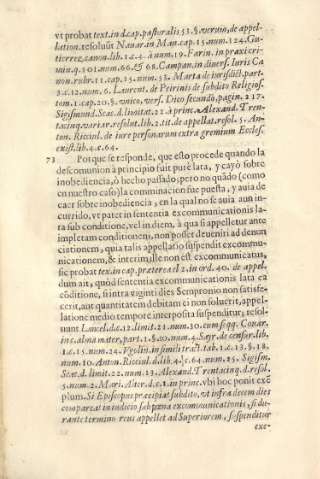 vt probat text. in d. cap. pastoralis 53. § verum, de appel-
lation. resoluit Nauar. in Man. cap. 25. num. 124. Gu-
tierrez, canon. lib. 1. c. 4. à num. 19. Farin. in praxi cri-
min. q. 101. num. 66. & 68. Campan. in diuers. Iuris Ca
non. rubr. 11. cap. 15. num. 53. Marta de iurisdict. part.
3. c. 12. num. 6. Laurent. de Peirinis de subdito Religios-
tom. 1. cap. 20. §. vnico, vers. Dico secundò, pagin. 217.
Sigismund. Scac. d. limitat. 22. à princ. Alexand. Tren-
tacinq. variar. resolut. lib. 2. tit. de appellat. resol. 5. An-
ton. Ricciul. de iure personarum extra gremium Ecclesi.
exist. lib. 4. c. 64.
73 Pot que se responde, que esto procede quando la
descomunion à principio fuit pure lata, y cayò sobre
inobediencia, ò hecho passado; pero no quãdo (como
en nuestro caso) la comminacion fue puesta, y auia de
caer sobre inobediencia, en la qual no se auia aun in-
currido, vt pater in sententia excommunicationis la-
ta sub conditione, vel in diem, à qua si appelletur ante
impletam conditionem, non posset deueniri ad denun
ciationem, quia talis appellatio suspendit excommu-
nicationem, & interim, ille non est excommunicatus,
sic probat tex. in cap. præterea el 2. in ord. 40. de appel-
dum ait, quòd sententia excommunicationis lata ea
cõditione, si intra viginti dies Sempronio non satisfe-
cerit, aut quantitatem debitam ei non soluerit, appel-
latione medio tempore interposita suspenditur; resol-
uunt Lancel. d. c. 12. limit. 21. num. 30. cum seqq. Couar.
in c. alma mater, part. 1. §. 10. num. 4. Sayr. de censur. lib.
1. c. 15. num. 24. Vgolin. in simili tract. tab. 1. c. 13. §. 18.
num. 10. Anton. Ricciul. d. lib. 4. c. 64. num. 15. Sigism.
Scac. d. limit. 22. num. 13. Alexand. Trentacinq. d. resol.
5. num. 2. Mari. Alter. d. c. 1. in princ. vbi hoc ponit exẽ
plum. Si Episcopus præcipiat subdito, vt infra decem dies
compareat in iudicio sub pœna excommunicationis, si du-
rante termino reus appellet ad Superiorem, suspenditur
exc-